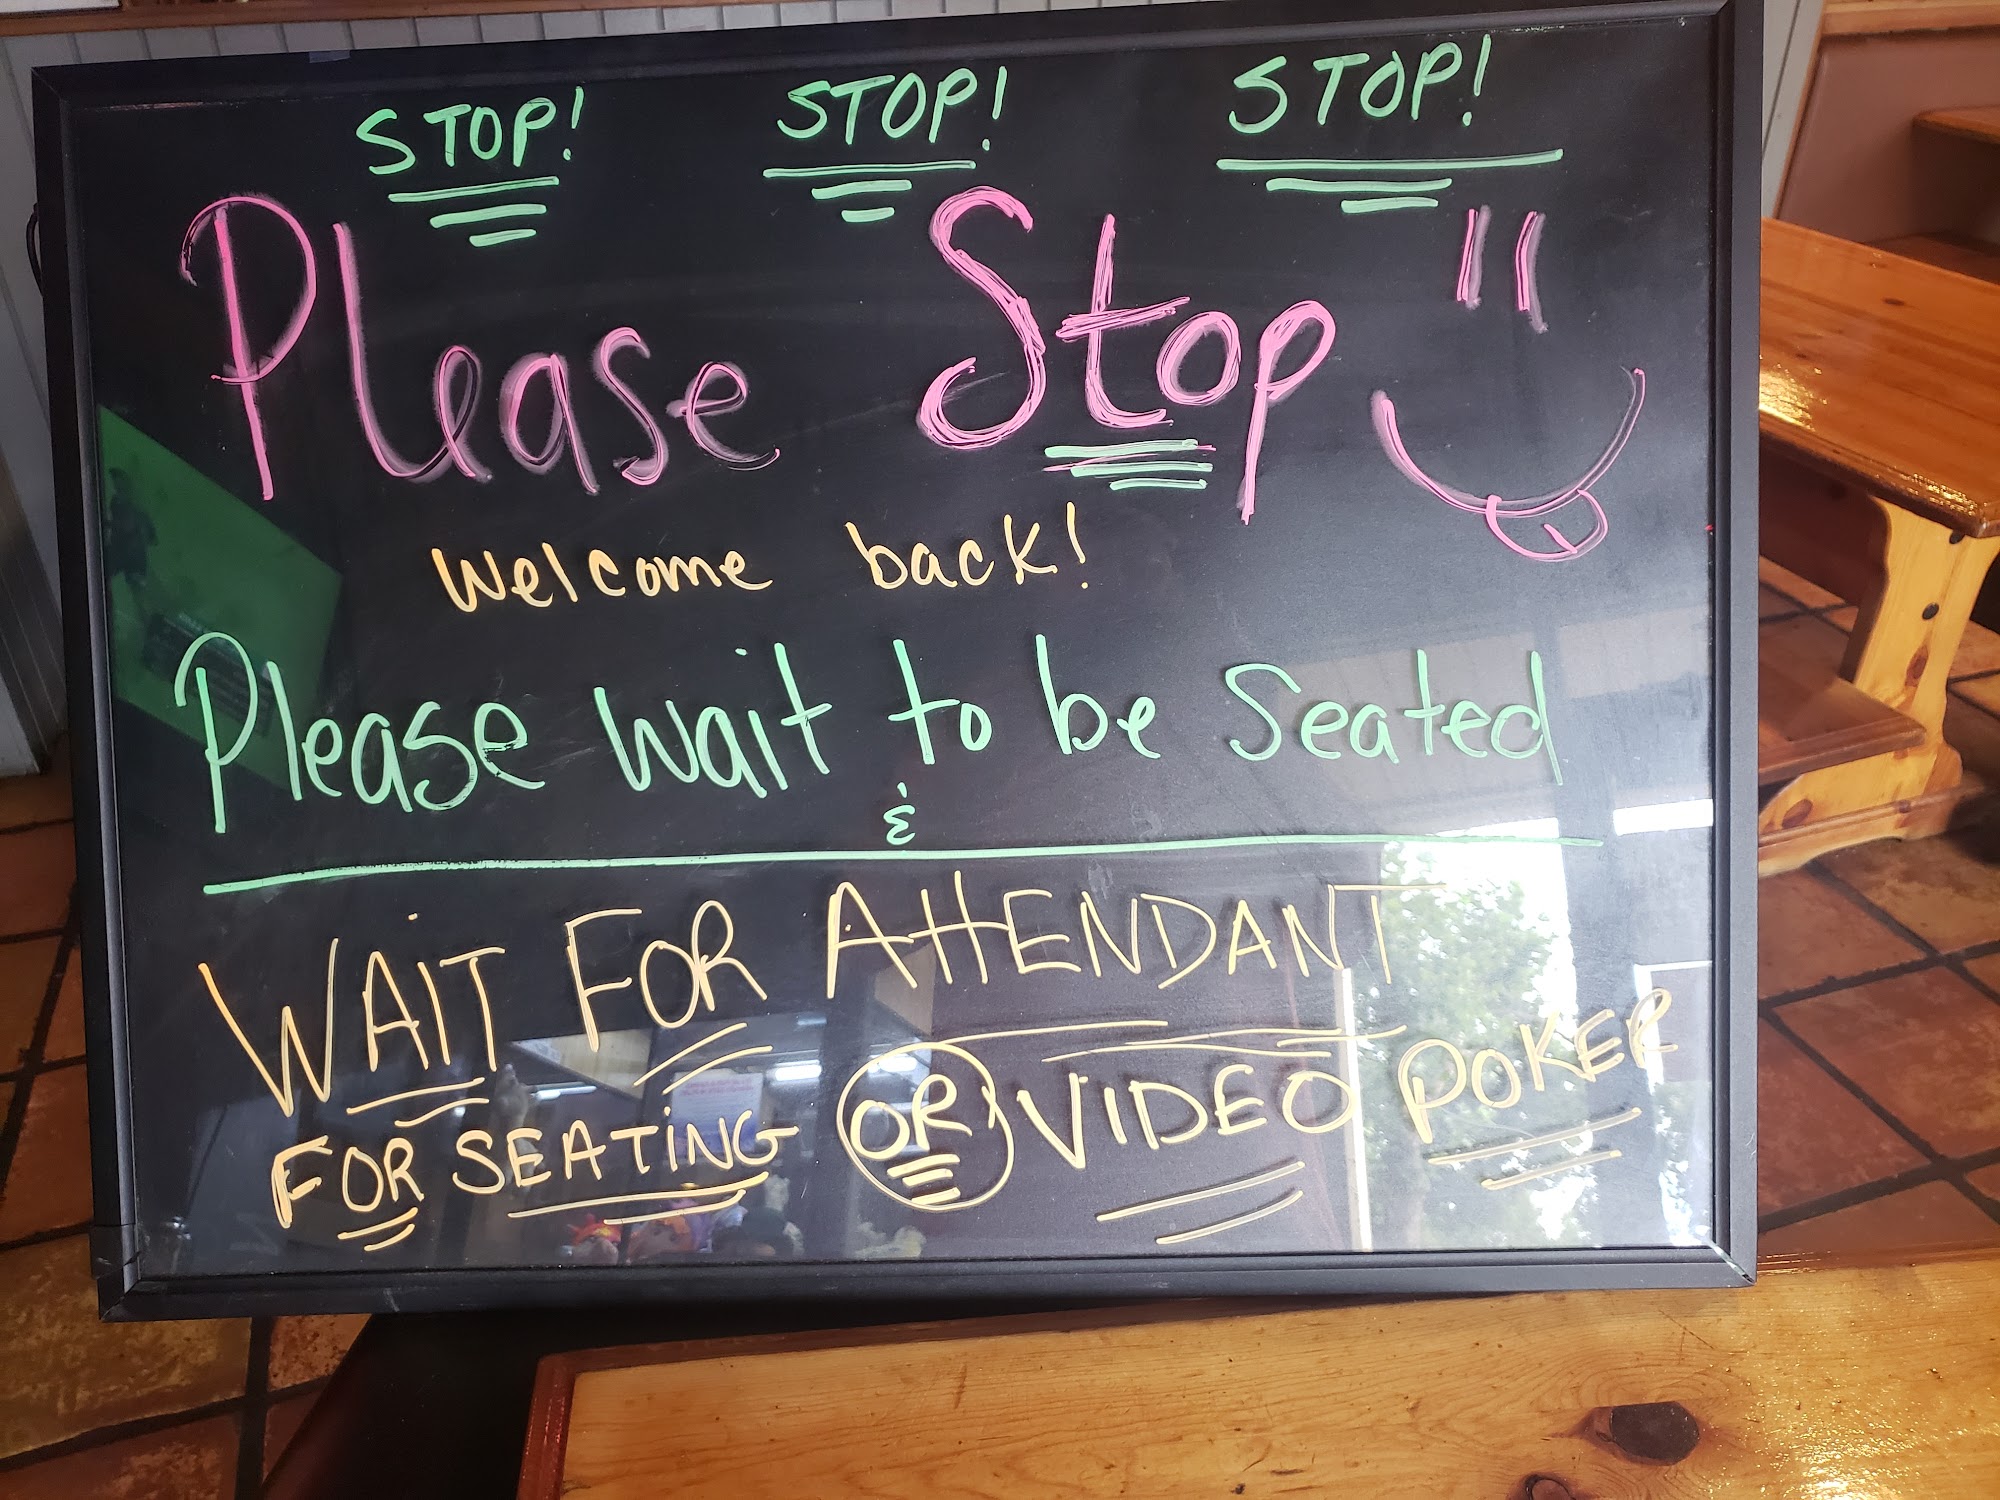 STOP! STOP! STOP!
Please Stop
Welcome back!
Please wait to be Seated
&
WAIT FOR ATTENDANT
FOR SEATING OR VIDEO POKER